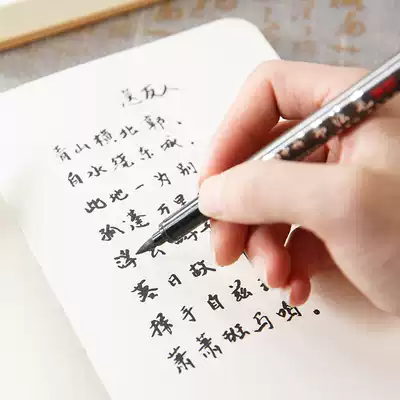 送友人
青山横北郭，
白水绕东城。
此地一为别
孤蓬万里
浮云
落日故
挥手自兹
萧萧班马鸣。